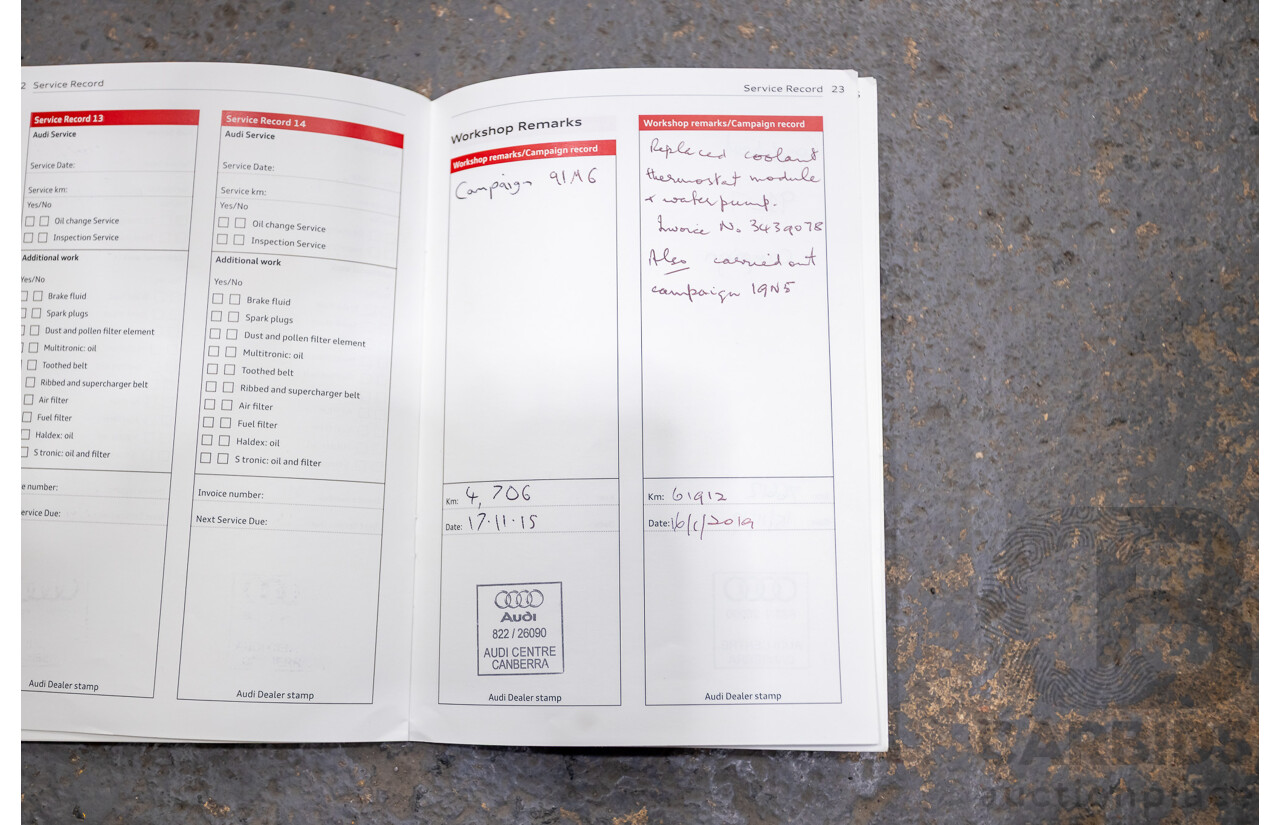 2 Service Record
Service Record 13
Audi Service
Service Date:
Service km:
Yes/No
Oil change Service
Inspection Service
Additional work
Yes/No
Brake fluid
Spark plugs
Dust and pollen filter element
Multitronic: oil
Toothed belt
Ribbed and supercharger belt
Air filter
Fuel filter
Haldex: oil
S tronic: oil and filter
e number:
ervice Due:
Audi Dealer stamp
Service Record 14
Audi Service
Service Date:
Service km:
Yes/No
Oil change Service
Inspection Service
Additional work
Yes/No
Brake fluid
Spark plugs
Dust and pollen filter element
Multitronic: oil
Toothed belt
Ribbed and supercharger belt
Air filter
Fuel filter
Haldex: oil
S tronic: oil and filter
Invoice number:
Next Service Due:
Audi Dealer stamp
Service Record 23
Workshop Remarks
Workshop remarks/Campaign record
Campaign 91M6
Km: 4,706
Date: 17.11.15
Audi
822 / 26090
AUDI CENTRE
CANBERRA
Audi Dealer stamp
Workshop remarks/Campaign record
Replaced coolant
thermostat module
& water pump.
Invoice No 3439078
Also carried out
campaign 19N5
Km: 61912
Date: 16/1/2019
Audi Dealer stamp